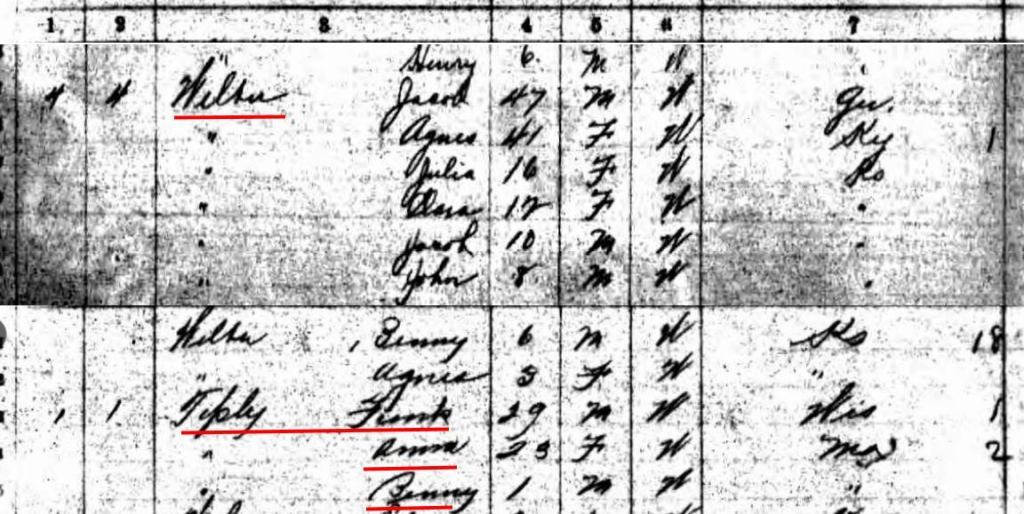 1 2 3 4 5 6 7
Henry 6 M W "
4 4 Wilber Jacob 47 M W Ger.
" Agnes 41 F W Ky 1
" Julia 16 F W Ks
" Clara 12 F W "
" Jacob 10 M W "
" John 8 M W "
Wilber Benny 6 M W Ks 18
" Agnes 3 F W "
1 1 Teply Frank 29 M W Wis 1
" Anna 23 F W Mo 2
" Benny 1 M W "